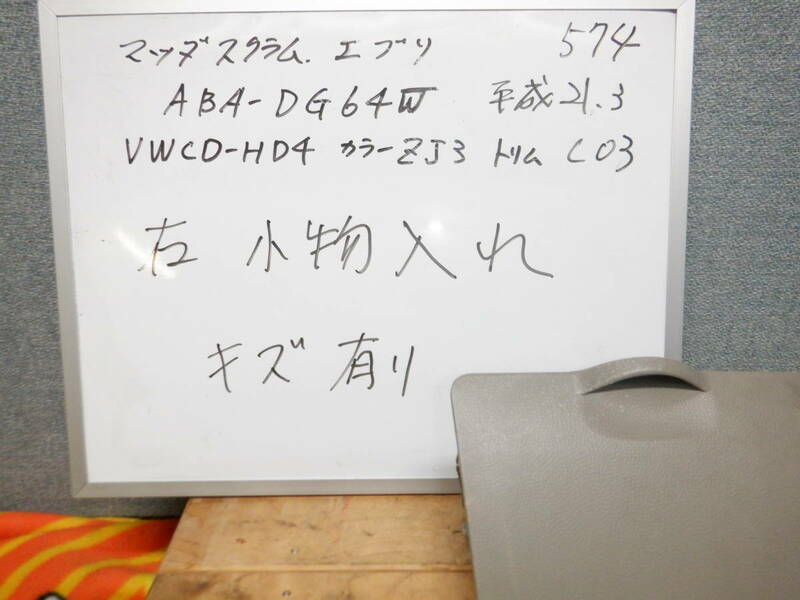 マツダスクラム.エブリ 574
ABA-DG64W 平成21.3
VWCD-HD4 カラーZJ3 トリム C03
右 小物入れ
キズ有り